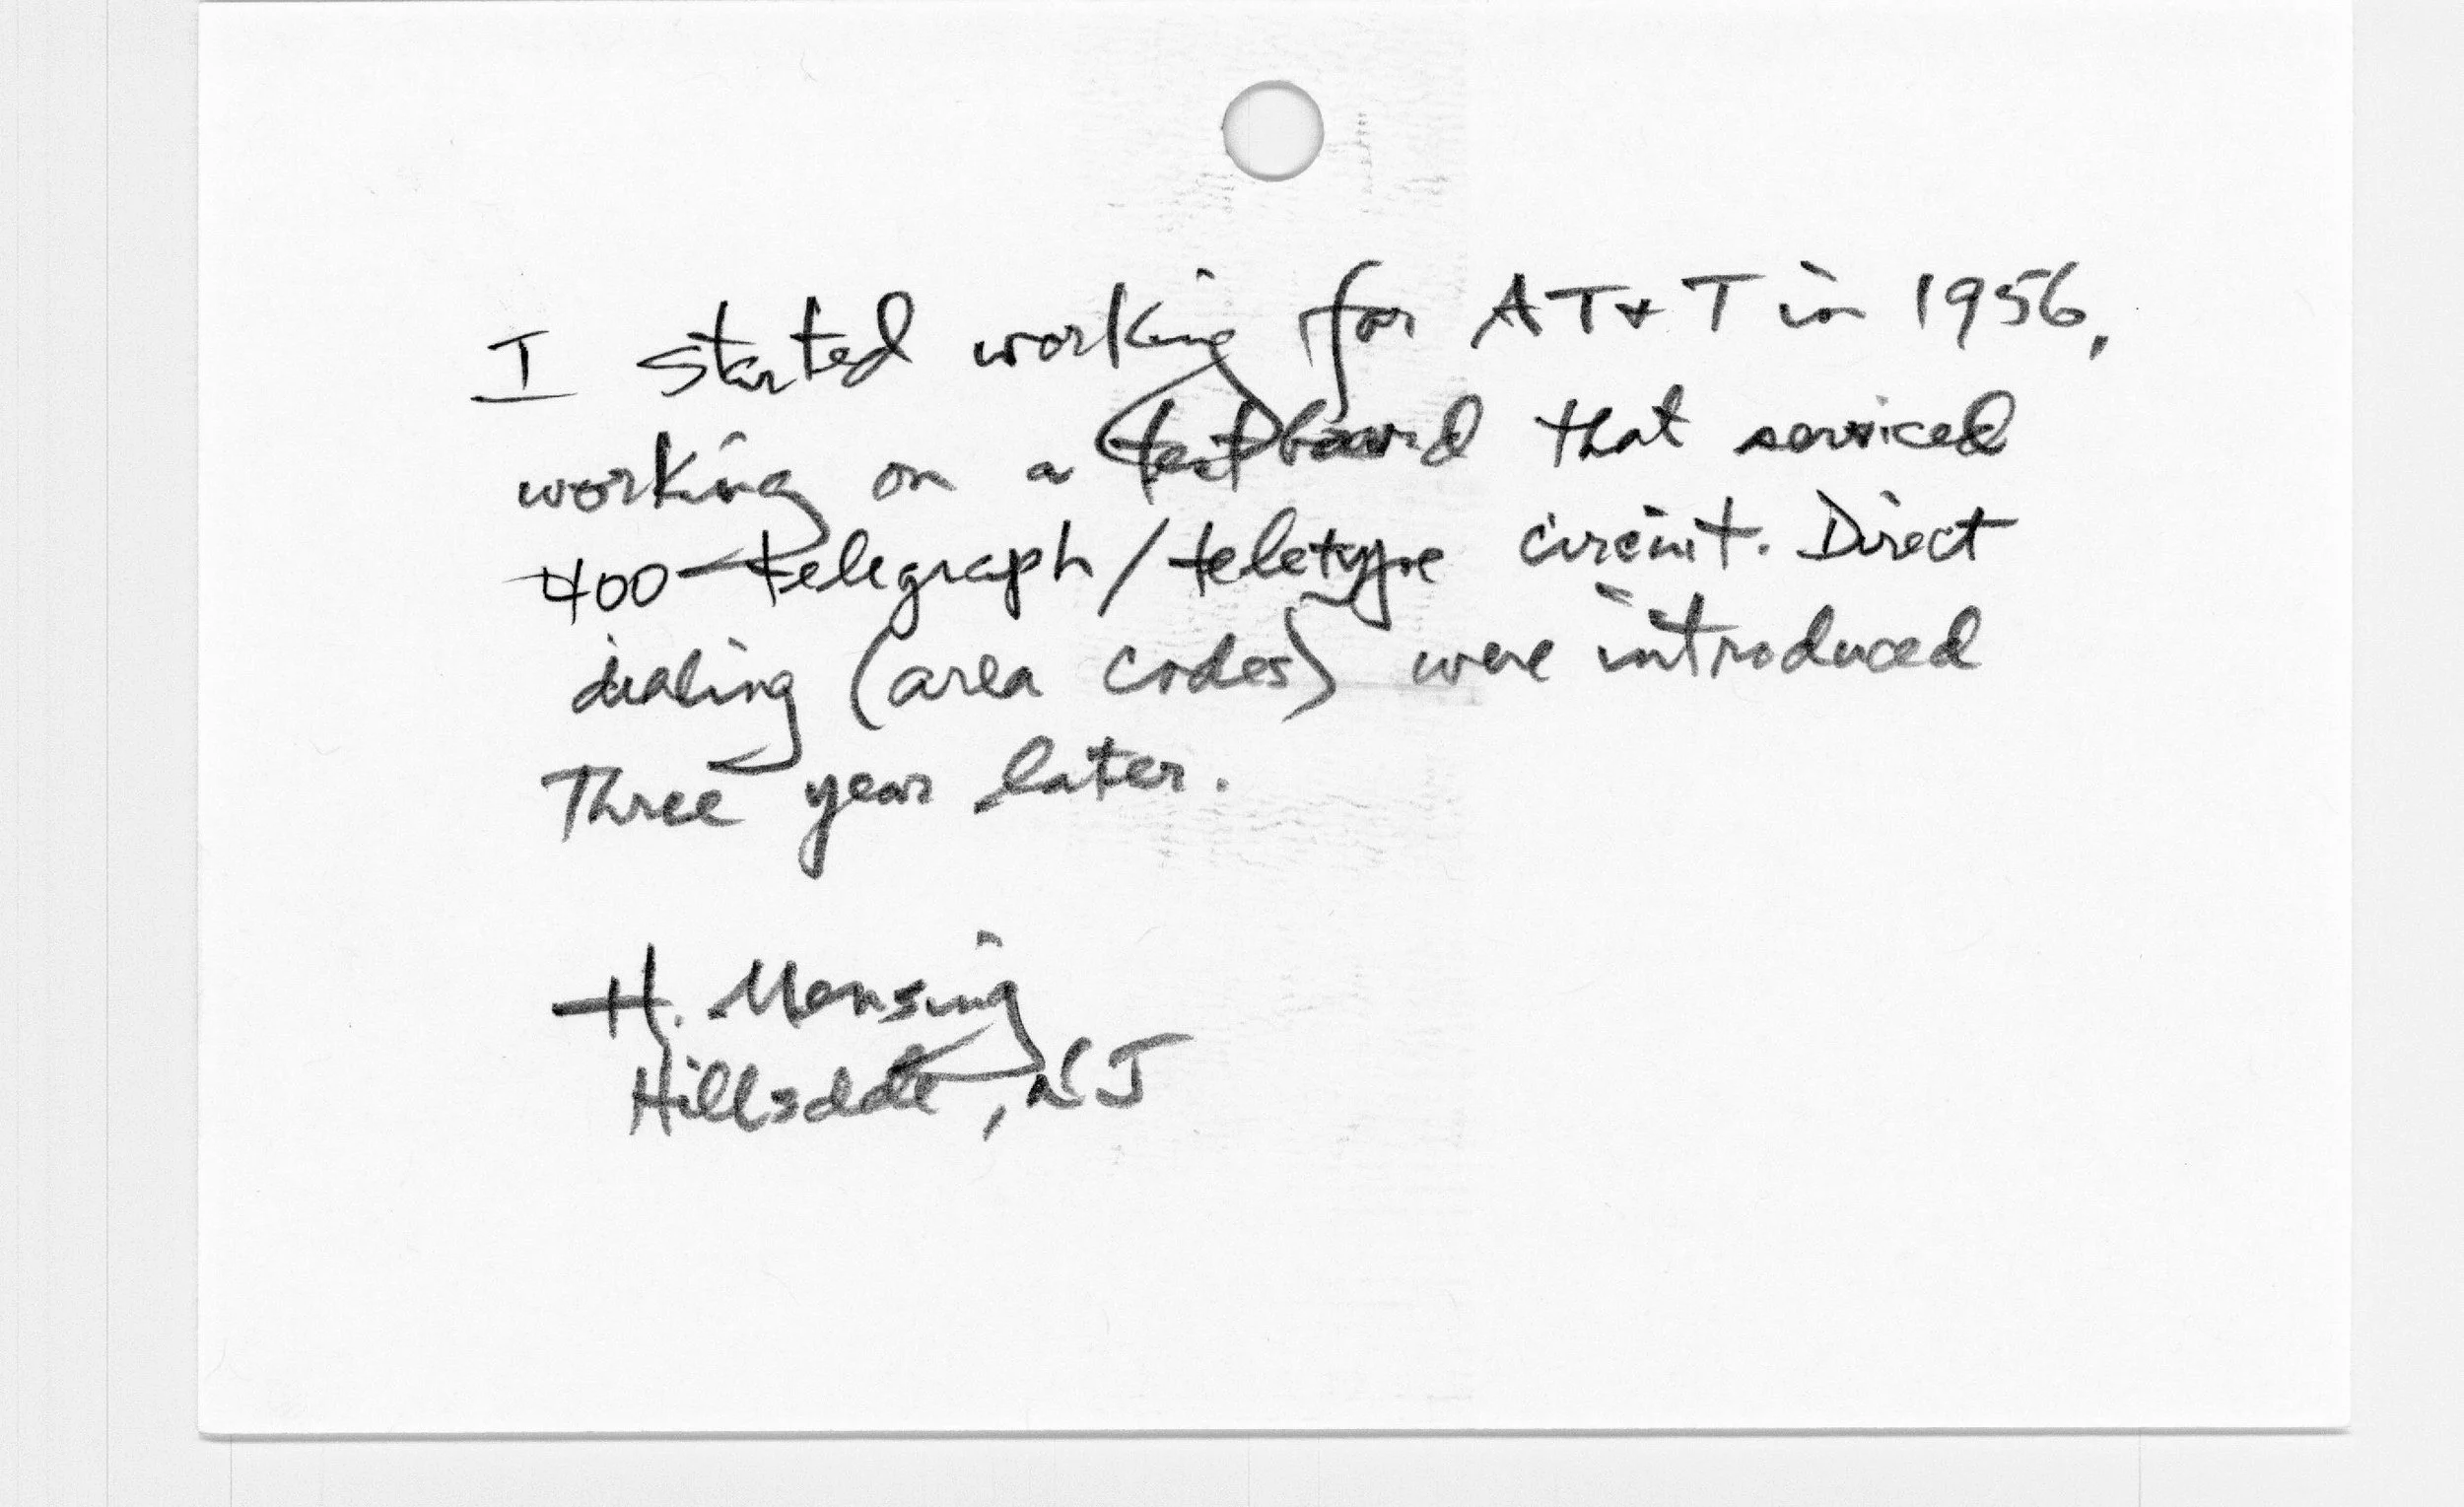 I started working for AT&T in 1956,
working on a testboard that serviced
400 telegraph/teletype circuit. Direct
dialing (area codes) were introduced
Three year later.
H. Mensing
Hillsdale, NJ